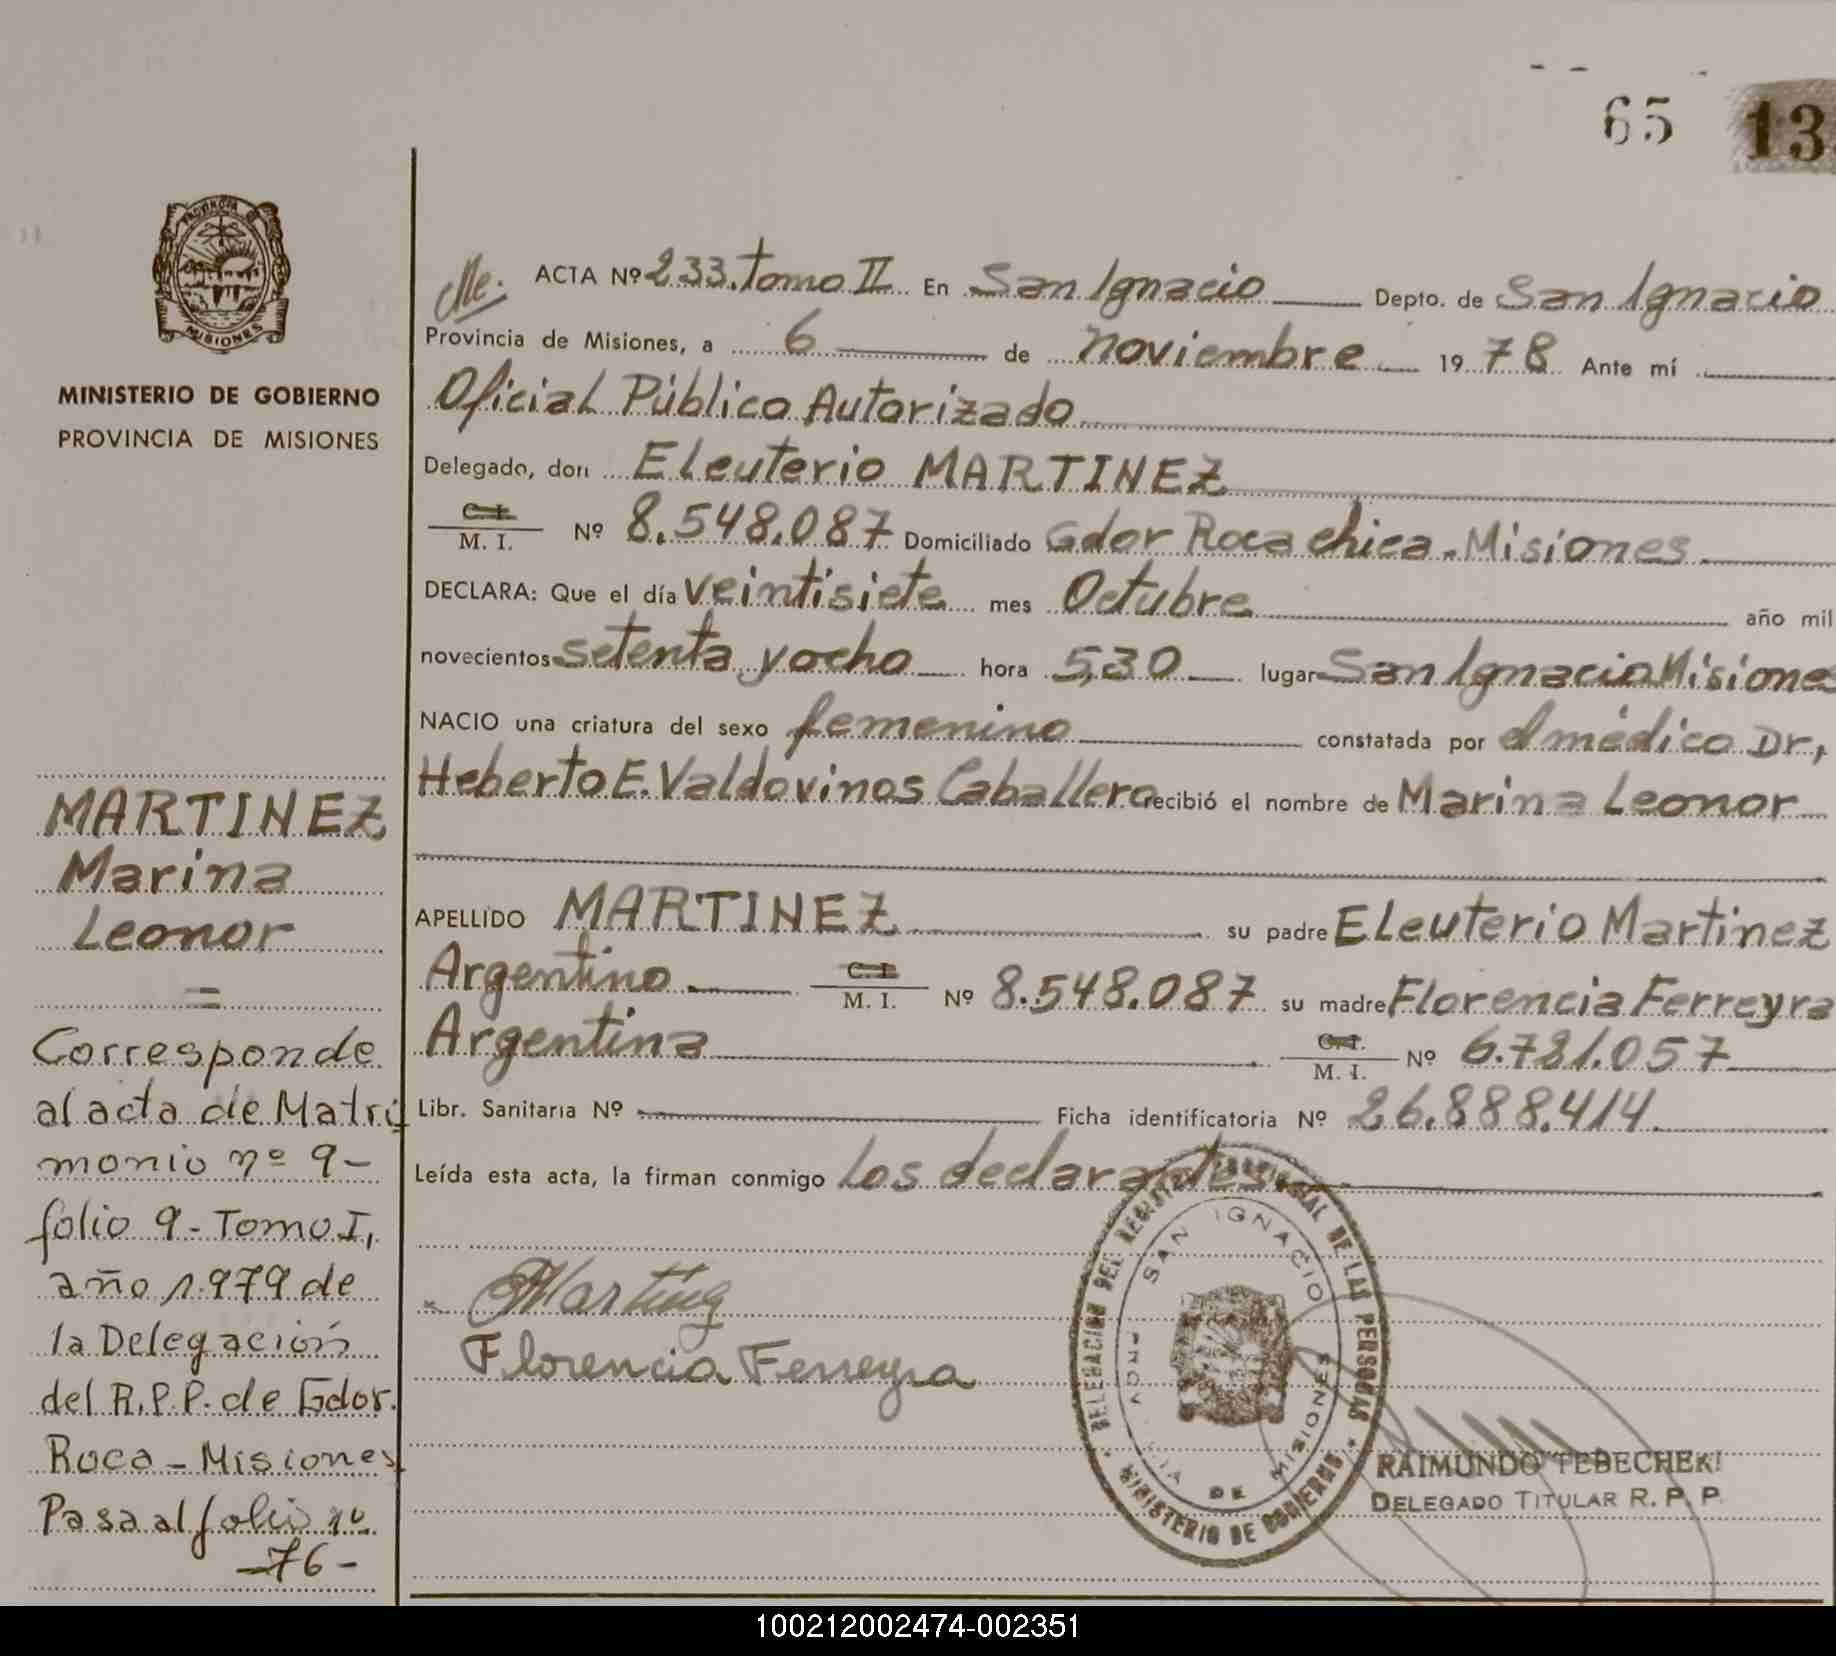 65 13
PROVINCIA DE
MISIONES
MINISTERIO DE GOBIERNO
PROVINCIA DE MISIONES
MARTINEZ
Marina
Leonor
=
Corresponde
al acta de Matri
monio nº 9-
folio 9- Tomo I,
año 1.979 de
la Delegación
del R.P.P. de Gdor.
Roca - Misiones
Pasa al folio nº
-76-
ACTA Nº 233. tomo II En San Ignacio Depto. de San Ignacio
Provincia de Misiones, a 6 de noviembre 1978 Ante mí
Oficial Público Autorizado
Delegado, don Eleuterio MARTINEZ
C. I.
M. I. Nº 8.548.087 Domiciliado Gdor Roca chica - Misiones
DECLARA: Que el día veintisiete mes Octubre año mil
novecientos setenta y ocho hora 5,30 lugar San Ignacio Misiones
NACIO una criatura del sexo femenino constatada por el médico Dr,
Heberto E. Valdovinos Caballero recibió el nombre de Marina Leonor
APELLIDO MARTINEZ su padre Eleuterio Martinez
Argentino C. I.
M. I. Nº 8.548.087 su madre Florencia Ferreyra
Argentina C. I.
M. I. Nº 6.781.057
Libr. Sanitaria Nº Ficha identificatoria Nº 26.888.414
Leída esta acta, la firman conmigo los declarantes
EMartinez
Florencia Ferreyra
DELEGACION DEL REGISTRO PROVINCIAL DE LAS PERSONAS
SAN IGNACIO
PROVINCIA DE MISIONES
MINISTERIO DE GOBIERNO
RAIMUNDO TEBECHEKI
DELEGADO TITULAR R. P. P.
100212002474-002351